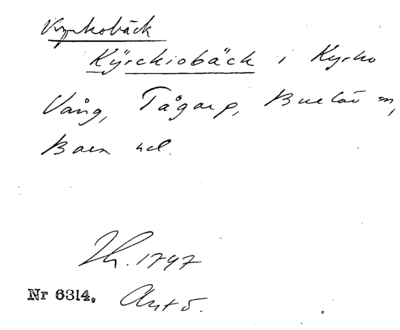 Kyrkobäck
Kÿrckiobäck i Kyrko
Vång, Tågarp, Bustad m,
Bara hd.
Th. 1747
Nr 6314. Akt 5.